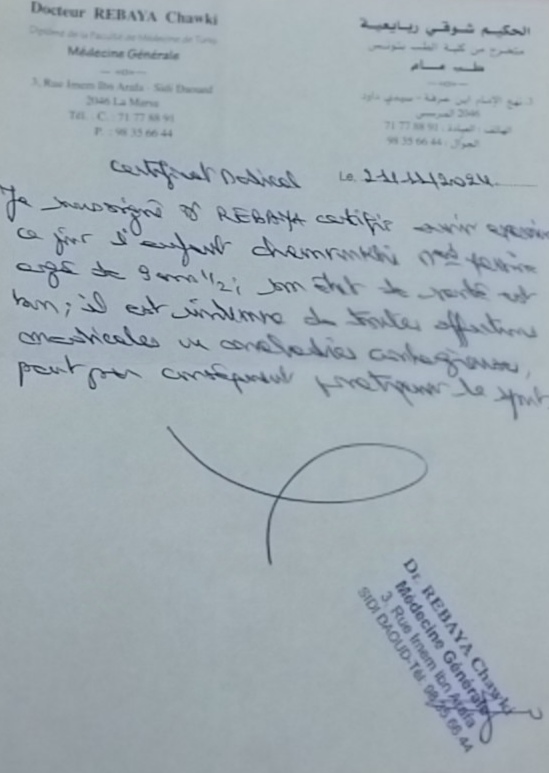 Docteur REBAYA Chawki
Diplômé de la Faculté de Médecine de Tunis
Médecine Générale
3, Rue Imem Ibn Arafa - Sidi Daoud
2046 La Marsa
Tél. C. : 71 77 88 91
P. : 98 35 66 44
الحكيم شوقي ريابعية
متخرج من كلية الطب بتونس
طب عام
3، نهج الإمام ابن عرفة - سيدي داود
2046 المرسى
الهاتف : العيادة : 71 77 88 91
الجوال : 98 35 66 44
Certificat Médical Le 21/11/2024
Je soussigné Dr REBAYA certifie avoir examiné
ce jour l'enfant
âgé de 9 ans 1/2 ; son état de santé est
bon ; il est indemne de toutes affections
médicales ou maladies contagieuses,
peut par conséquent pratiquer le sport
Dr. REBAYA Chawki
Médecine Générale
3, Rue Imem Ibn Arafa
SIDI DAOUD-Tél: 98 35 66 44